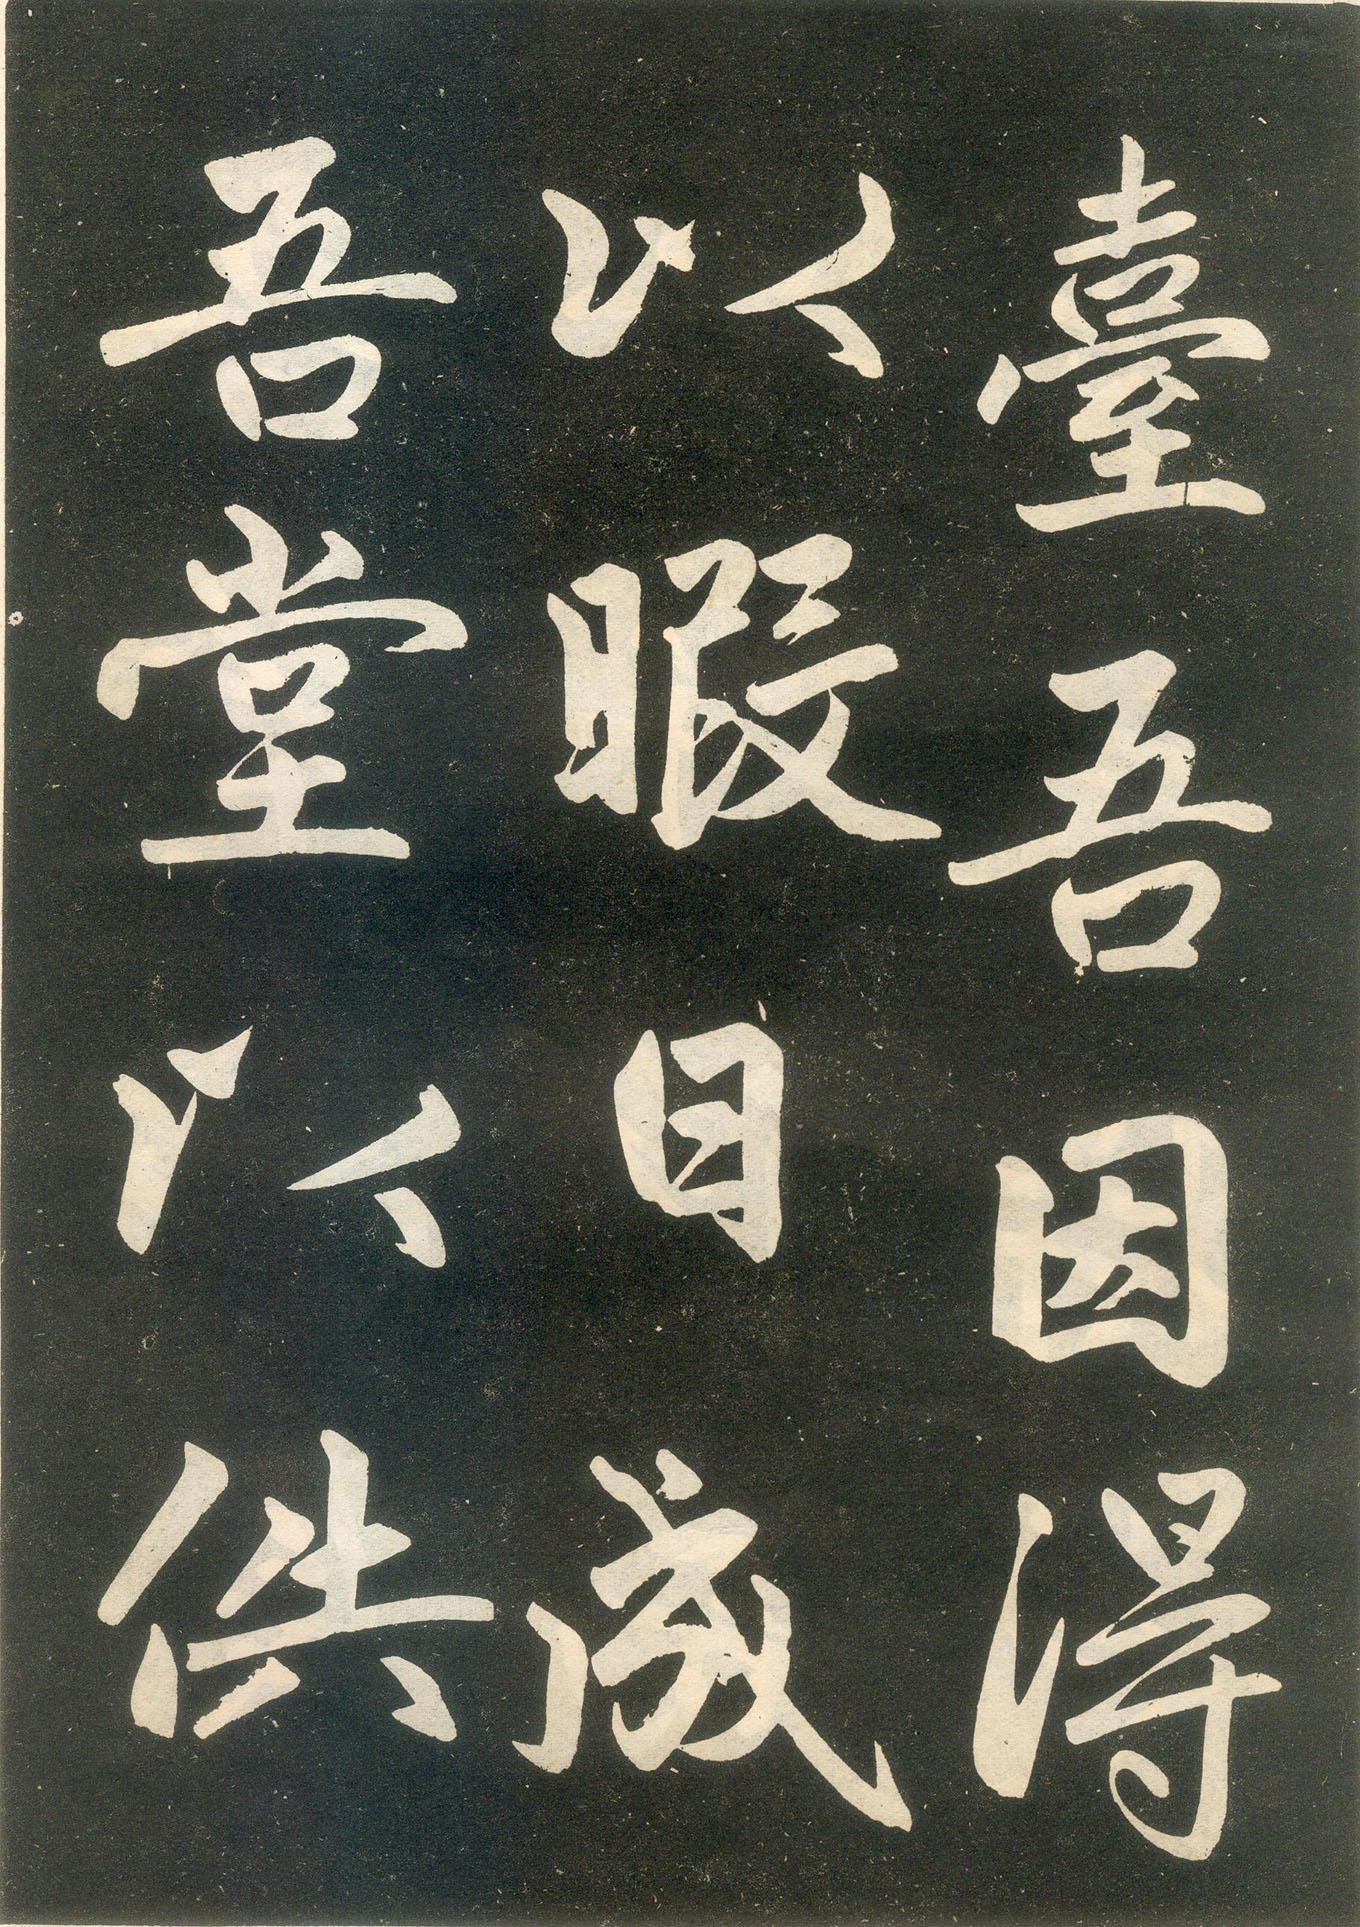 臺吾因得
以暇日
吾堂以供